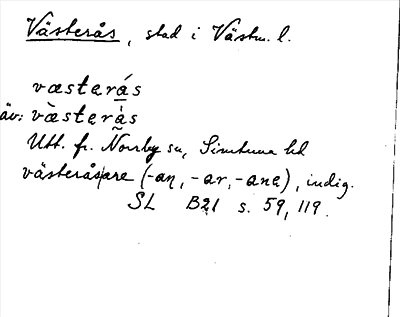 Västerås, stad i Västm. l.
væsterás
äv: væ̀steràs
Utt. fr. Norrby sn, Simtuna hd
västerås/are (-an, -ar, -ane), indig.
SL B21 s. 59, 119.